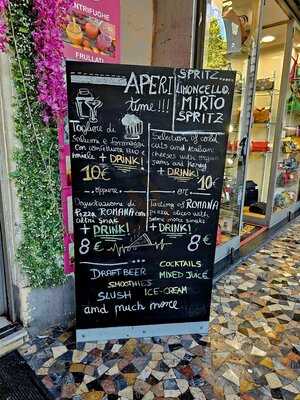 CENTRIFUGHE
FRULLATI
APERI
time!!!
SPRITZ
LIMONCELLO
MIRTO
SPRITZ
Tagliere di
Salumi e formaggi
con confetture BIO e
miele + DRINK!
10€
oppure
Degustazione di
Pizza ROMANA con
altri snak
+ DRINK!
8€
Selection of cold
cuts and italian
cheeses with organic
jams and honey
+ DRINK!
10€
OR
Tasting of ROMANA
pizza slices with
some more snaks
+ DRINK!
8€
DRAFT BEER
SMOOTHIES
SLUSH
COCKTAILS
MIXED JUICE
ICE-CREAM
and much more